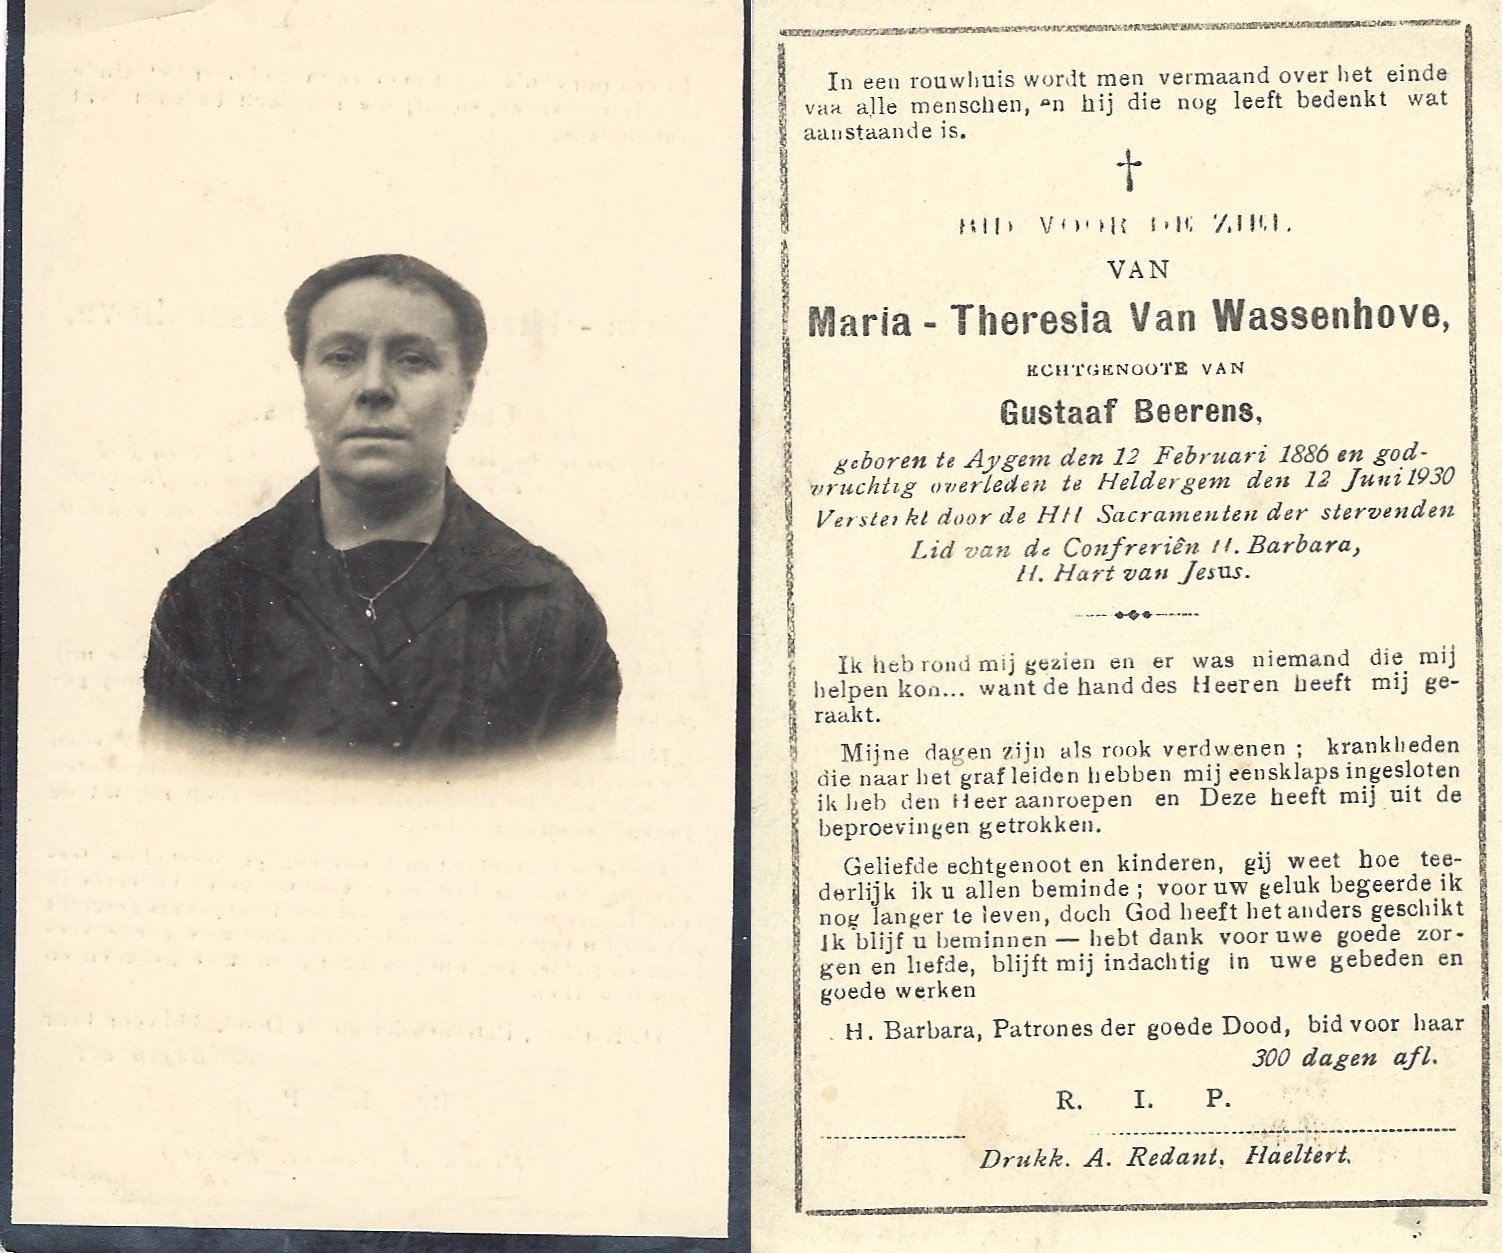 In een rouwhuis wordt men vermaand over het einde
vaa alle menschen, en hij die nog leeft bedenkt wat
aanstaande is.
BID VOOR DE ZIEL
VAN
Maria - Theresia Van Wassenhove,
ECHTGENOOTE VAN
Gustaaf Beerens,
geboren te Aygem den 12 Februari 1886 en god-
vruchtig overleden te Heldergem den 12 Juni 1930
Versterkt door de HH Sacramenten der stervenden
Lid van de Confreriên H. Barbara,
H. Hart van Jesus.
Ik heb rond mij gezien en er was niemand die mij
helpen kon... want de hand des Heeren heeft mij ge-
raakt.
Mijne dagen zijn als rook verdwenen ; krankheden
die naar het graf leiden hebben mij eensklaps ingesloten
ik heb den Heer aanroepen en Deze heeft mij uit de
beproevingen getrokken.
Geliefde echtgenoot en kinderen, gij weet hoe tee-
derlijk ik u allen beminde ; voor uw geluk begeerde ik
nog langer te leven, doch God heeft het anders geschikt
Ik blijf u beminnen — hebt dank voor uwe goede zor-
gen en liefde, blijft mij indachtig in uwe gebeden en
goede werken
H. Barbara, Patrones der goede Dood, bid voor haar
300 dagen afl.
R. I. P.
Drukk. A. Redant, Haeltert.